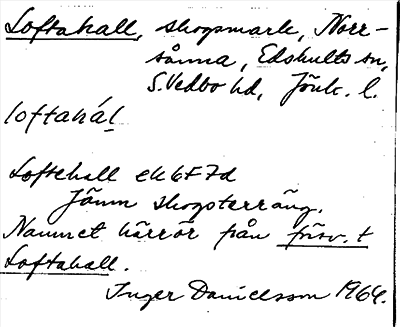 Loftahall, skogsmark, Norr-
sånna, Edshults sn,
S. Vedbo hd, Jönk. l.
loftahál
Loftehall ek 6F7d
Jämn skogsterräng.
Namnet härrör från försv. t
Loftahall.
Inger Danielsson 1964.